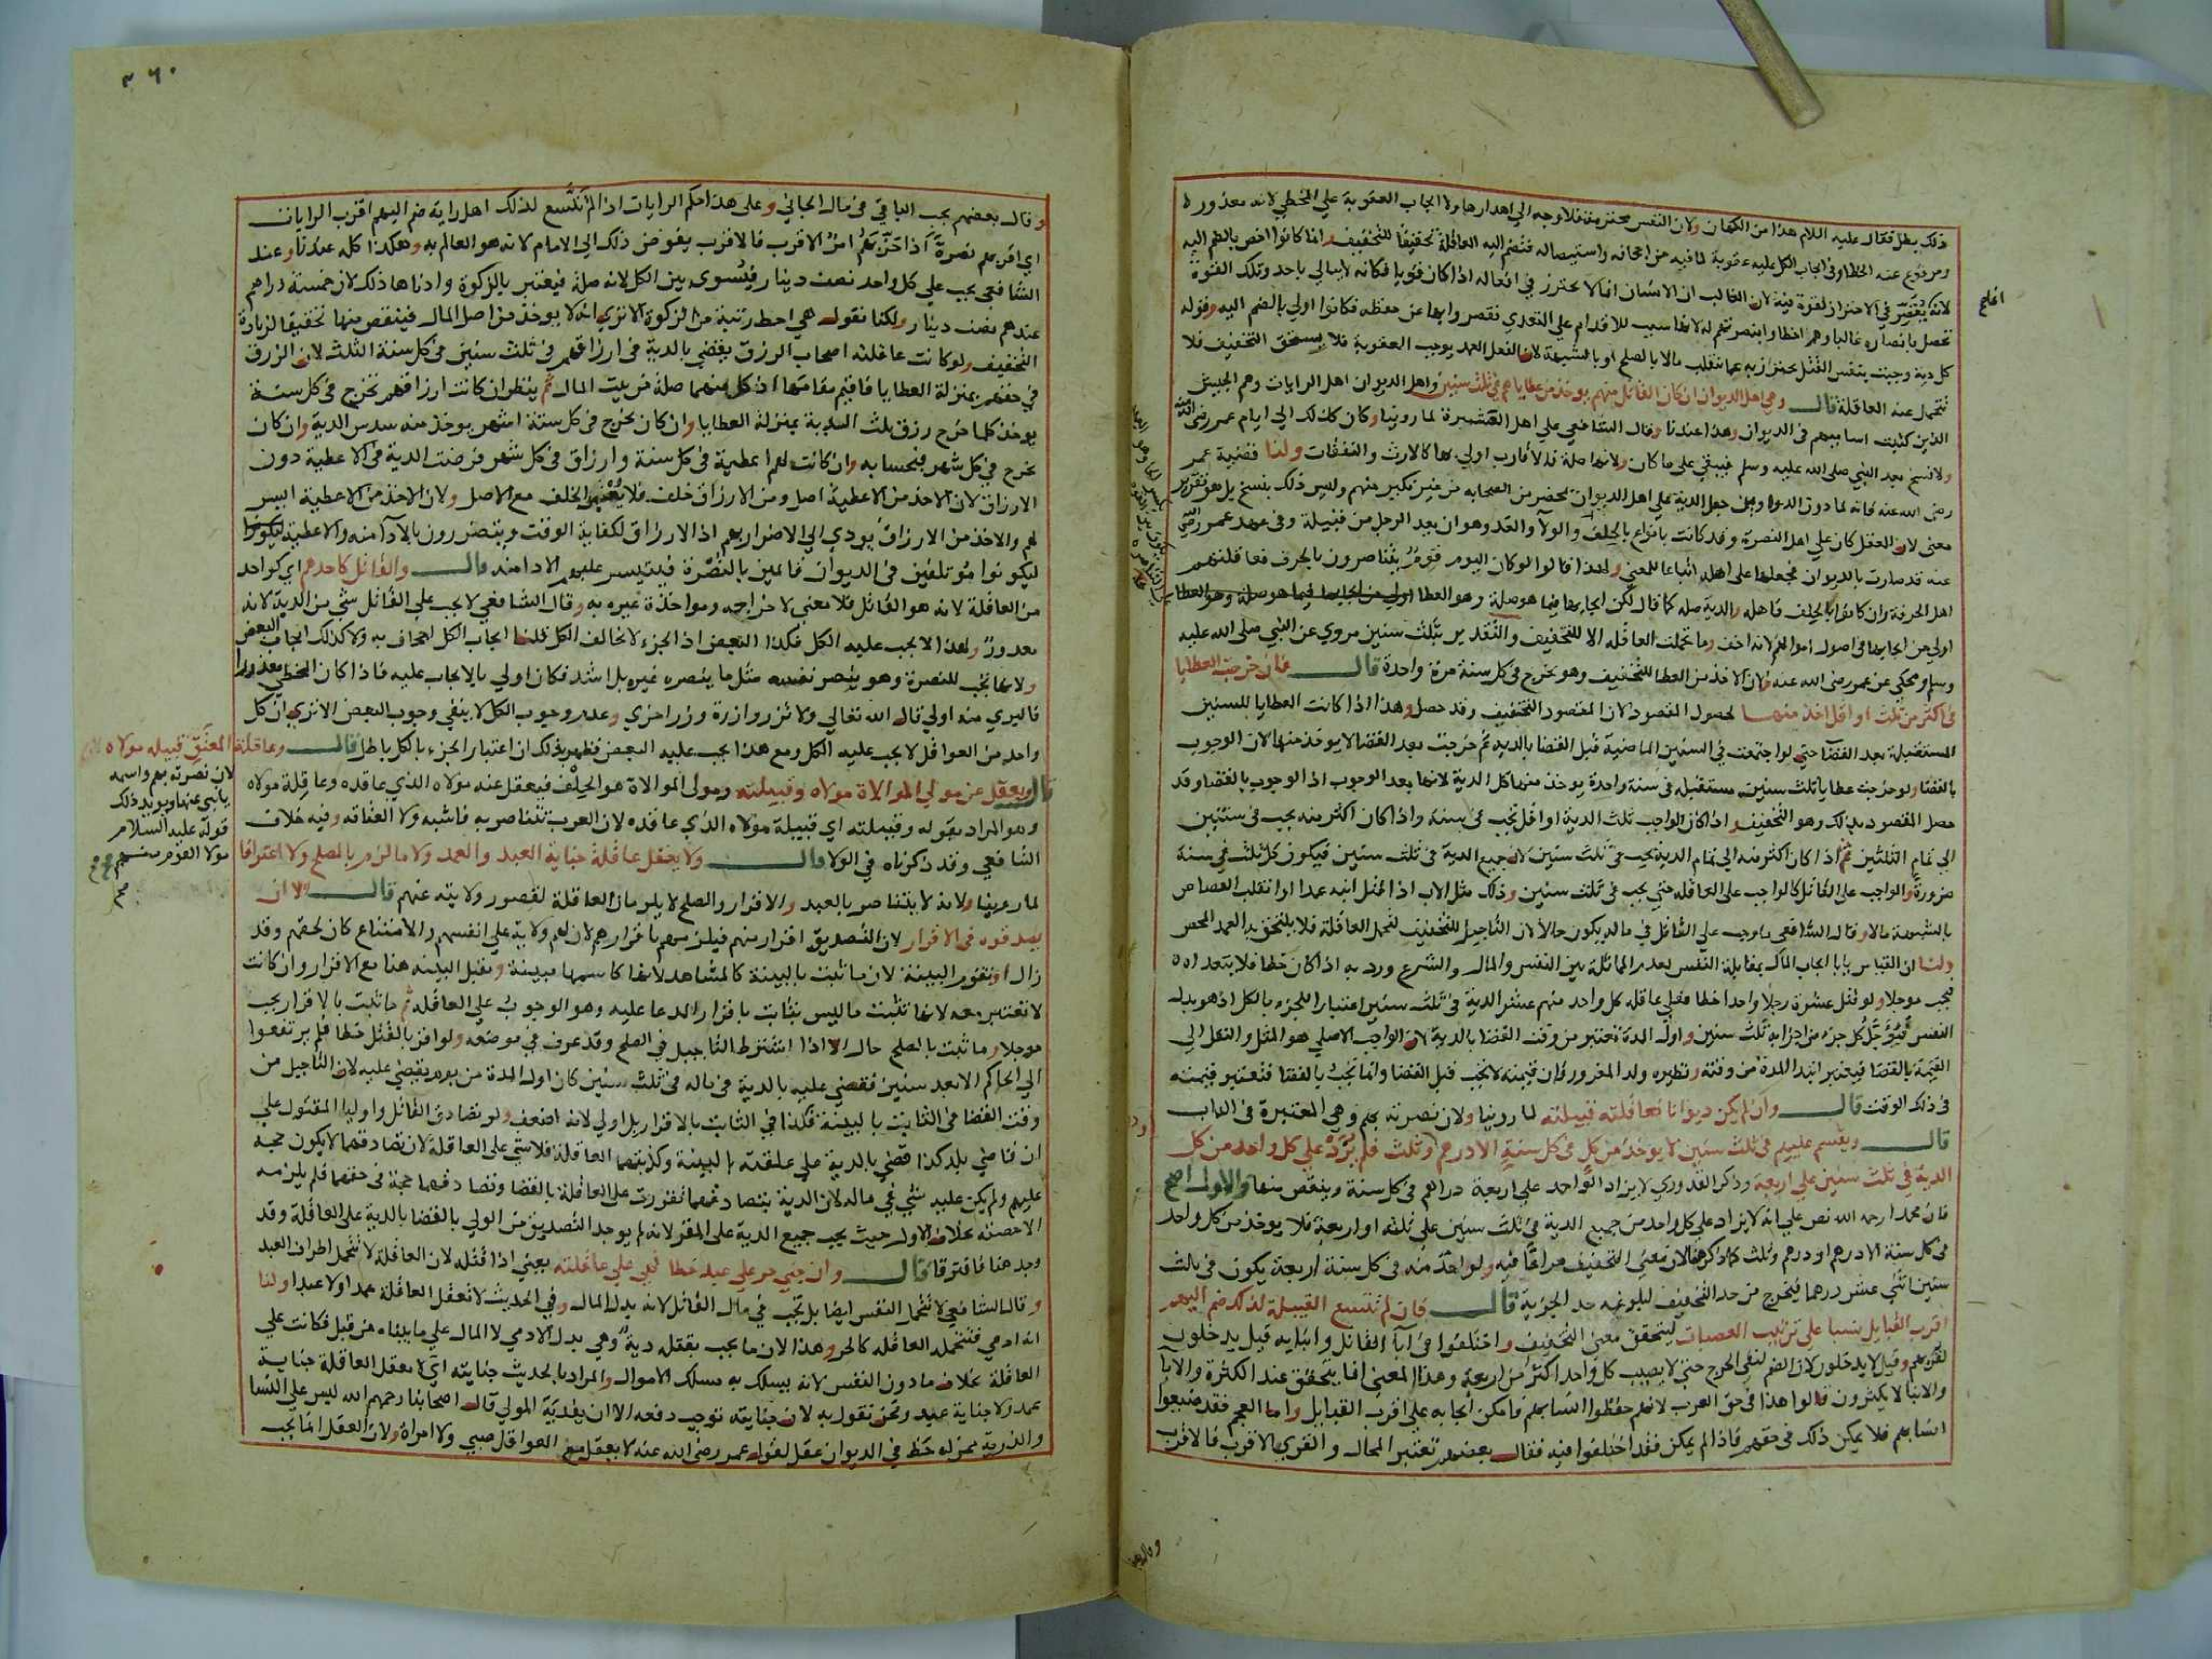 ذلك يطل فقال عليه السلام هذا من الكهان ولان النفس محترمة فلا وجه الى اهدارها ولا ايجاب العقوبة على المخطي لانه معذور
ومرفوع عنه الخطا وفى ايجاب الكل عليه عقوبة لما فيه من اجحافه واستيصاله فتضم اليه العاقلة تحقيقا للتخفيف وانما كانوا اخص بالضم اليه
لانه يقصر في الاحتراز لقوة فيه لان الغالب ان الانسان انما لا يحترز في افعاله اذا كان قويا فكانه لا يبالي باحد وتلك القوة
تحصل بانصاره غالبا وهم اخطاوا بنصرتهم له لانها سبب للاقدام على التعدي فقصروا بها عن حفظه فكانوا اولى بالضم اليه وقوله
كل دية وجبت بنفس القتل يحترز به عما تنقلب مالا بالصلح او بالشبهة لان الفعل العمد يوجب العقوبة فلا يستحق التخفيف فلا
تتحمل عنه العاقلة قال وهى اهل الديوان ان كان القاتل منهم يوخذ من عطاياهم في ثلث سنين واهل الديوان اهل الرايات وهم الجيش
الذين كتبت اساميهم فى الديوان وهذا عندنا وقال الشافعي على اهل العشيرة لما روينا وكان كذلك الى ايام عمر رضى الله عنه
ولا نسخ بعد النبي صلى الله عليه وسلم فيبقي على ما كان ولانها صلة فالاقارب اولى بها كالارث والنفقات ولنا قضية عمر
رضى الله عنه فانه لما دون الدواوين جعل الدية على اهل الديوان بمحضر من الصحابه من غير نكير منهم وليس ذلك بنسخ بل هو تقرير
معنى لان العقل كان على اهل النصرة وقد كانت بانواع بالحلف والولا والعد وهو ان يعد الرجل من قبيلة وفى عهد عمر رضي الله
عنه قد صارت بالديوان فجعلها على اهله اتباعا للمعنى ولهذا قالوا لو كان اليوم قوم يتناصرون بالحرف فعاقلتهم
اهل الحرفة وان كانوا بالحلف فاهله والدية صله كما قال لكن ايجابها فيما هو صلة وهو العطا اولى من ايجابها فيما هو صلة وهو العطا
اولى من ايجابها فى اصول اموالهم لانه اخف وما تحملت العاقله الا للتخفيف والتقدير بثلث سنين مروي عن النبي صلى الله عليه
وسلم ومحكي عن عمر رضى الله عنه ولان الاخذ من العطا للتخفيف وهو يخرج فى كل سنة مرة واحدة قال فان خرجت العطايا
فى اكثر من ثلث او اقل اخذ منها لحصول المقصود لان المقصود التخفيف وقد حصل وهذا اذا كانت العطايا للسنين
المستقبلة بعد القضا حتى لو اجتمعت فى السنين الماضية قبل القضا بالدية ثم خرجت بعد القضا لا يوخذ منها لان الوجوب
بالقضا ولو خرجت عطايا ثلث سنين مستقبله فى سنة واحدة يوخذ منها كل الدية لانها بعد الوجوب اذ الوجوب بالقضا وقد
حصل المقصود بذلك وهو التخفيف واذا كان الواجب ثلث الدية او اقل تجب فى سنة واذا كان اكثر منه يجب فى سنتين
الى تمام الثلثين ثم اذا كان اكثر منه الى تمام الدية يجب فى ثلث سنين لان جميع الدية فى ثلث سنين فيكون كل ثلث في سنة
ضرورة والواجب على القاتل كالواجب على العاقله حتى يجب فى ثلث سنين وذلك مثل الاب اذا قتل ابنه عمدا او انقلب القصاص
بالشبهة مالا وقال الشافعي ما وجب على القاتل في ماله يكون حالا لان التاجيل للتخفيف لتحمل العاقلة فلا يلتحق به العمد المحض
ولنا ان القياس يابا ايجاب المال بمقابلة النفس لعدم المماثلة بين النفس والمال والشرع ورد به اذا كان خطا فلا يتعداه
فيجب موجلا ولو قتل عشرة رجلا واحدا خطا فعلى عاقله كل واحد منهم عشر الدية فى ثلث سنين اعتبارا للجزء بالكل اذ هو بدل
النفس فيؤجل كل جزء من اجزايه ثلث سنين واول المدة تعتبر من وقت القضا بالدية لان الواجب الاصلى هو المثل والنقل الى
القيمة بالقضا فيعتبر ابتدا المدة من وقته ونظيره ولد المغرور فان قيمته لا تجب قبل القضا وانما تجب بالقضا فتعتبر قيمته
فى ذلك الوقت قال وان لم يكن ديوانا فعاقلته قبيلته لما روينا ولان نصرته بهم وهى المعتبرة فى الباب
قال ويقسم عليهم فى ثلث سنين لا يوخذ من كل فى كل سنة الا درهم او ثلث فلم يزد على كل واحد من كل
الدية في ثلث سنين على اربعة وذكر القدوري لا يزاد الواحد على اربعة دراهم فى كل سنة وينقص منها والاول اصح
فان محمدا رحمه الله نص على انه لا يزاد على كل واحد من جميع الدية فى ثلث سنين على ثلثه او اربعة فلا يوخذ من كل واحد
فى كل سنة الا درهم او درهم وثلث كما ذكر هنا لان معنى التخفيف مراعا فيه ولو اخذ منه فى كل سنة اربعة يكون فى ثلث
سنين اثنى عشر درهما فيخرج من حد التخفيف لبلوغه حد الجزية قال فان لم تتسع القبيلة لذلك ضم اليهم
اقرب القبايل نسبا على ترتيب العصبات ليتحقق معنى التخفيف واختلفوا فى ابا القاتل وابنايه قيل يدخلون
لقربهم وقيل لا يدخلون لان الضم لنفى الحرج حتى لا يصيب كل واحد اكثر من اربعة وهذا المعنى انما يتحقق عند الكثرة والابا
والابنا لا يكثرون قالوا هذا فى حق العرب لانهم حفظوا انسابهم فامكن ايجابه على اقرب القبايل واما العجم فقد ضيعوا
انسابهم فلا يمكن ذلك فى حقهم فاذا لم يمكن فقد اختلفوا فيه فقال بعضهم تعتبر المحال والقرى الاقرب فالاقرب
٣٦٠
وقال بعضهم يجب الباقى فى مال الجاني وعلى هذا حكم الرايات اذا لم تتسع لذلك اهل راية ضم اليهم اقرب الرايات
اي اقربهم نصرة اذا حزبهم امر الاقرب فالاقرب يفوض ذلك الى الامام لانه هو العالم به وهكذا كله عندنا وعند
الشافعي يجب على كل واحد نصف دينار فيسوى بين الكل لانه صلة فيعتبر بالزكوة وادناها ذلك لان خمسة دراهم
عندهم نصف دينار ولكنا نقول هى احط رتبة من الزكوة الا ترى انه لا يوخذ من اصل المال فينقص منها تحقيقا لزيادة
التخفيف ولو كانت عاقلته اصحاب الرزق يقضي بالدية فى ارزاقهم فى ثلث سنين فى كل سنة الثلث لان الرزق
في حقهم بمنزلة العطايا فاقيم مقامها اذ كل منهما صلة من بيت المال ثم ينظر ان كانت ارزاقهم تخرج فى كل سنة
يوخذ كلما خرج رزق ثلث الدية بمنزلة العطايا وان كان يخرج فى كل ستة اشهر يوخذ منه سدس الدية وان كان
يخرج فى كل شهر فبحسابه وان كانت لهم اعطية فى كل سنة وارزاق فى كل شهر فرضت الدية فى الاعطية دون
الارزاق لان الاخذ من الاعطية اصل ومن الارزاق خلف فلا يعتبر الخلف مع الاصل ولان الاخذ من الاعطية ايسر
لهم والاخذ من الارزاق يودي الى الاضرار بهم اذ الارزاق لكفاية الوقت ويتضررون بالادا منه والاعطية ليكونوا
ليكونوا مؤتلفين فى الديوان قايمين بالنصرة فيتيسر عليهم الادا منه قال والقاتل كاحدهم اي كواحد
من العاقلة لانه هو القاتل فلا معنى لاخراجه ومواخذة غيره به وقال الشافعي لا يجب على القاتل شى من الدية لانه
معذور ولهذا لا يجب عليه الكل فكذا البعض اذ الجزء لا يخالف الكل قلنا ايجاب الكل اجحاف به ولا كذلك ايجاب البعض
ولانها تجب للنصرة وهو ينصر نفسه مثل ما ينصره غيره بل اشد فكان اولى بالايجاب عليه فاذا كان المخطي معذورا
فالبري منه اولى قال الله تعالى ولا تزر وازرة وزر اخرى وعدم وجوب الكل لا ينفي وجوب البعض الا ترى ان كل
واحد من العواقل لا يجب عليه الكل ومع هذا يجب عليه البعض فظهر بذلك ان اعتبار الجزء بالكل باطل قال وعاقلة المعتق قبيله مولاه
قال ويعقل عن مولى الموالاة مولاه وقبيلته ومولى الموالاة هو الحلف فيعقل عنه مولاه الذي عاقده وعاقلة مولاه
وهو المراد بقوله وقبيلته اي قبيلة مولاه الذي عاقده لان العرب تتناصر به فاشبه ولا العتاقه وفيه خلاف
الشافعي وقد ذكرناه في الولا قال ولا يعقل عاقلة جناية العبد والعمد ولا ما لزم بالصلح ولا اعترافا
لما روينا ولانه لا يتناصر بالعبد والاقرار والصلح لا يلزمان العاقلة لقصور ولايته عنهم قال الا ان
يصدقوه فى الاقرار لان التصديق اقرار منهم فيلزمهم باقرارهم لان لهم ولاية على انفسهم والامتناع كان لحقهم وقد
زال او تقوم البينة لان ما ثبت بالبينة كالمشاهد لانها كاسمها مبينة وتقبل البينه هنا مع الاقرار وان كانت
لا تعتبر معه لانها تثبت ما ليس بثابت باقرار المدعا عليه وهو الوجوب على العاقله ثم ما ثبت بالاقرار يجب
موجلا وما ثبت بالصلح حال الا اذا اشترط التاجيل في الصلح وقد عرف في موضعه ولو اقر بالقتل خطا فلم يرتفعوا
الى الحاكم الا بعد سنين فقضى عليه بالدية فى ماله فى ثلث سنين كان اول المدة من يوم يقضي عليه لان التاجيل من
وقت القضا فى الثابت بالبينة فكذا في الثابت بالاقرار بل اولى لانه اضعف ولو تصادق القاتل واوليا المقتول على
ان قاضي بلد كذا قضي بالدية على عاقلته بالبينة وكذبتهما العاقلة فلا شى على العاقلة لان تصادقهما لا يكون حجة
عليهم ولم يكن عليه شى في ماله لان الدية بتصادقهما تقررت على العاقلة بالقضا وتصادقهما حجة فى حقهما فلم يلزمه
الا حصته بخلاف الاول حيث يجب جميع الدية على المقر لانه لم يوجد التصديق من الولى بالقضا بالدية على العاقلة وقد
وجد هنا فافترقا قال وان جنى حر على عبد خطا فهى على عاقلته يعنى اذا قتله لان العاقلة لا تتحمل اطراف العبد
وقال الشافعي لا تتحمل النفس ايضا بل تجب في مال القاتل لانه بدل المال وفي الحديث لا تعقل العاقلة عمدا ولا عبدا ولنا
انه ادمي فتتحمله العاقله كالحر وهذا لان ما يجب بقتله دية وهي بدل الادمي لا المال على ما بيناه من قبل فكانت على
العاقلة بخلاف ما دون النفس لانه يسلك به مسلك الاموال والمراد بالحديث جنايته اي لا يعقل العاقلة جناية
عمد ولا جناية عبد ونحن نقول به لان جنايته توجب دفعه الا ان يفديه المولى قال اصحابنا رحمهم الله ليس على النسا
والذرية ممن له حظ في الديوان عقل لقول عمر رضى الله عنه لا يعقل مع العواقل صبي ولا امراة ولان العقل انما يجب
لان نصرته بهم واسمه
ينبى عنها ويويد ذلك
قوله عليه السلام
مولا القوم منهم